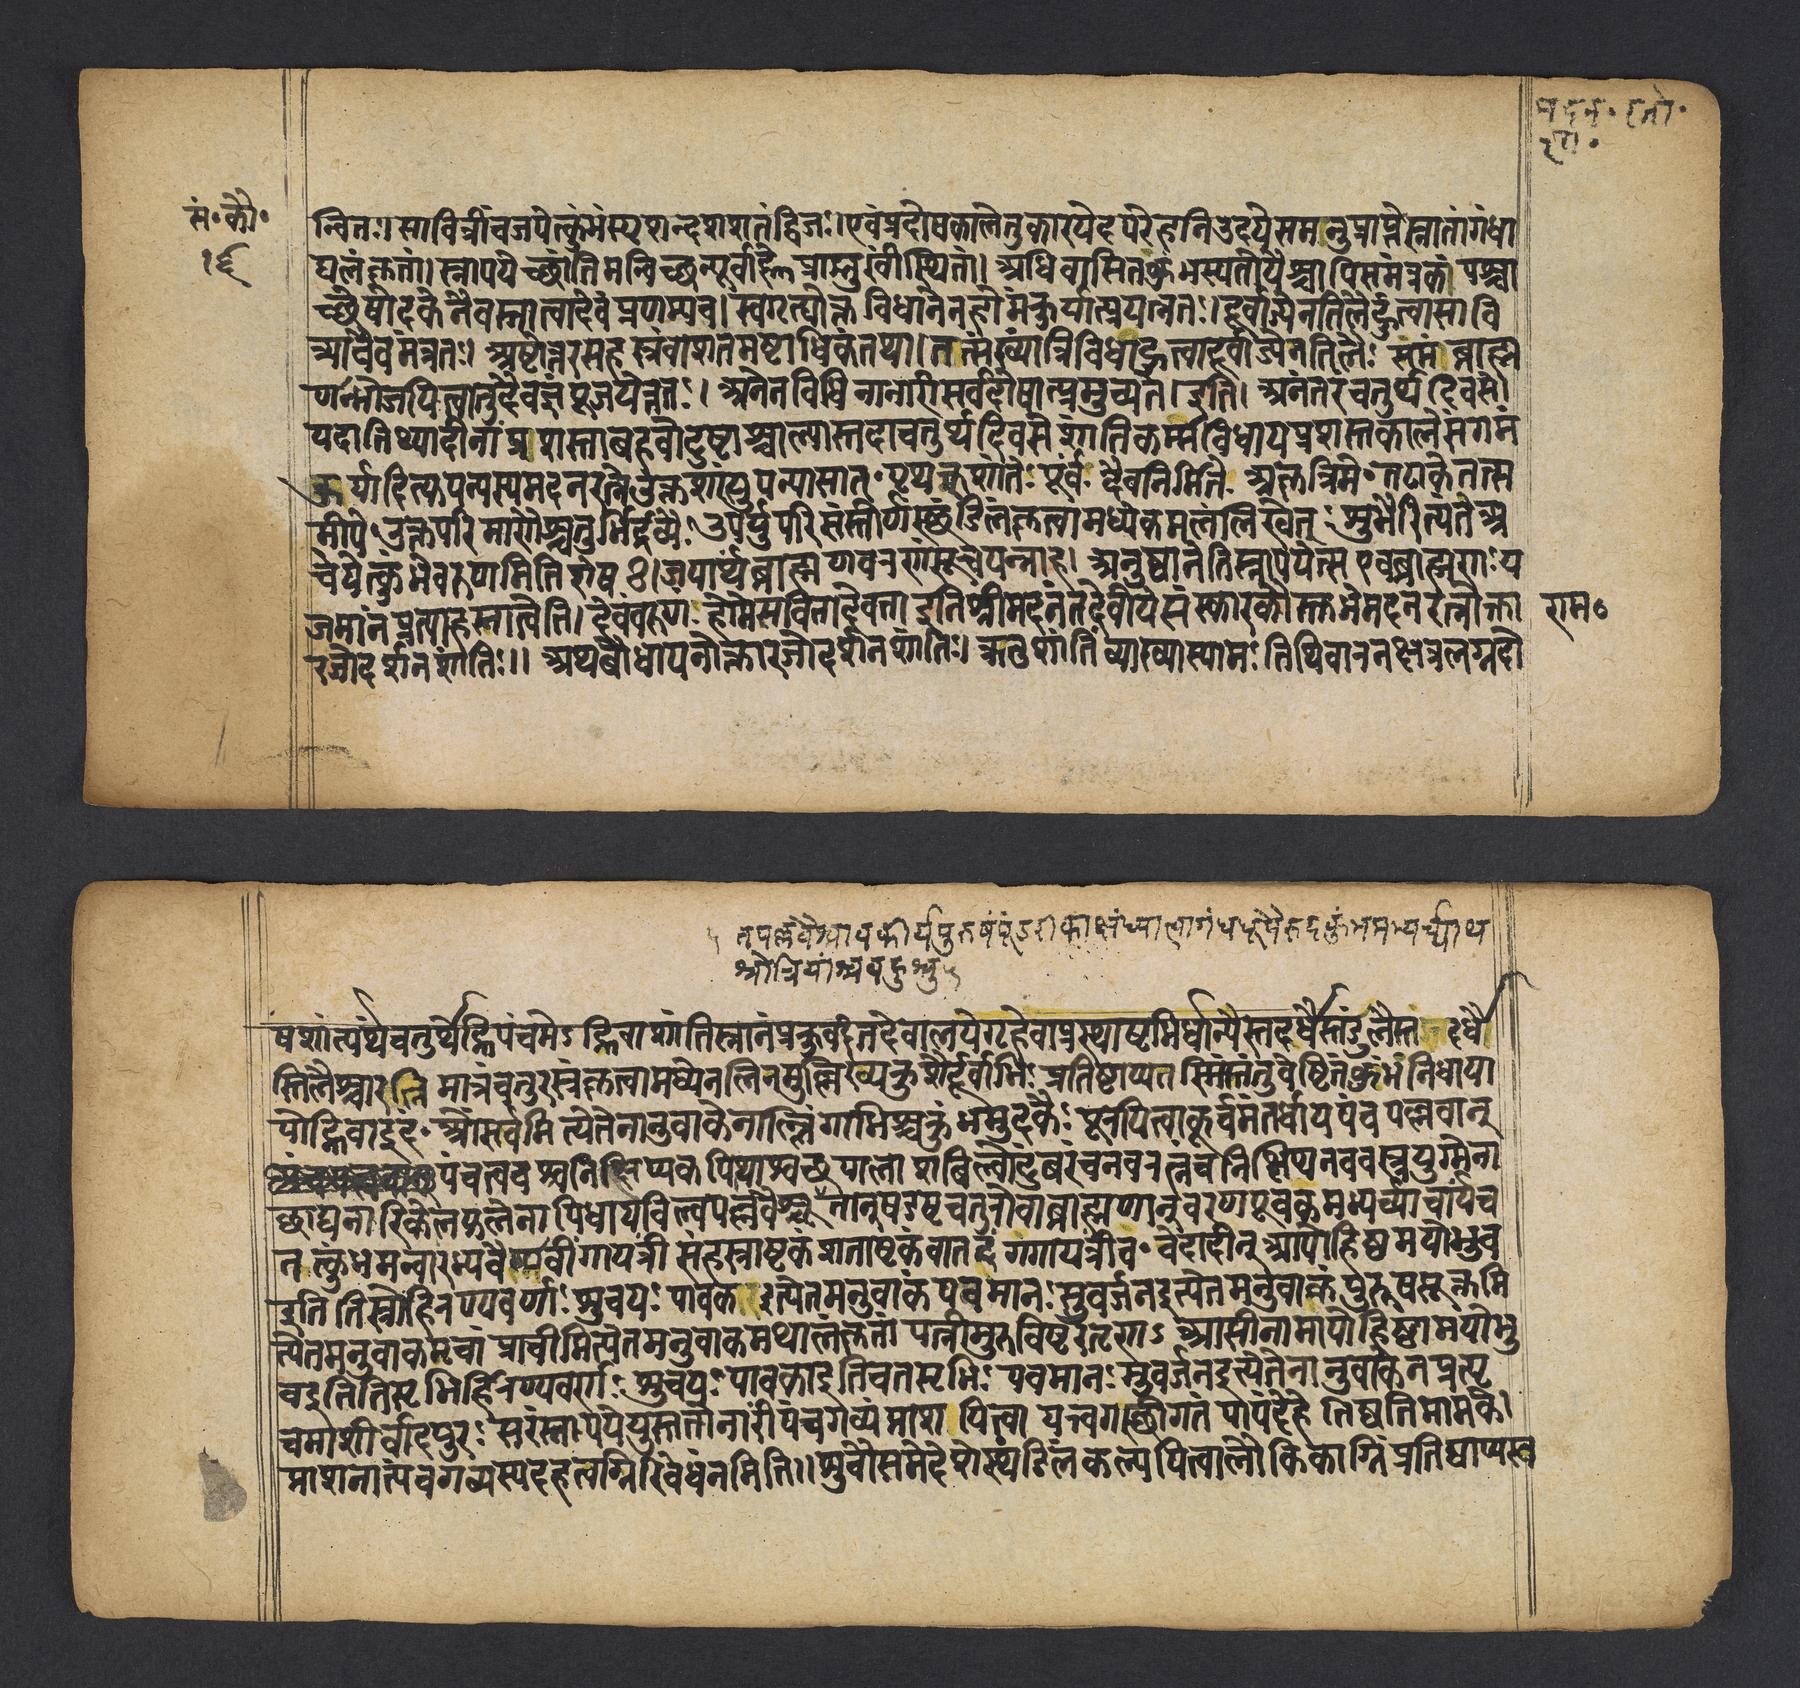 सं॰ कौ॰
१६
न्वितः। सावित्रींचजपेत्कुंभंस्पृशन्दशशतंद्विजः। एवंप्रदोषकालेतुकारयेदपरेहनिउदयेसमनुप्राप्तेस्नातांगंधा
द्यलंकृतां। स्नापयेच्छांतिमन्विच्छन्पूर्वाह्णेप्राङ्मुखींस्थितां। अधिवासितकुंभस्यतोयैश्चापिसमंत्रकं पश्चा
च्छुद्धोदकेनैवस्नात्वादेवंप्रणम्यच। स्वगृह्योक्तविधानेनहोमंकुर्यात्प्रयत्नतः। दूर्वाज्येनतिलैर्हुत्वासावि
त्र्याचैवमंत्रतः। अष्टोत्तरसहस्रंवाशतमष्टाधिकंतथा। तत्संख्यात्रिविधाहुत्वादूर्वाज्येनतिलैः समं ब्राह्म
णान्भोजयित्वातुदैवज्ञंपूजयेत्ततः। अनेनविधिनानारीसर्वदोषात्प्रमुच्यते। इति। अनंतरंचतुर्थदिवसे
यदातिथ्यादीनां प्राशस्तांबहवोदुष्टाश्चाल्पास्तदाचतुर्थदिवसेशांतिकर्मविधायप्रशस्तकालेसंगमं
कुर्यादित्युपन्यस्यमदनरत्नेउक्तशांत्युपन्यासात्॰ पृथक्शांतेः पूर्वं॰ देवनिर्मिते अकृत्रिमे॰ तटाके तत्स
मीपे उक्तपरिमाणैश्चतुर्भिर्द्रव्यैः उपर्युपरिसंस्तीर्णस्थंडिलंकृत्वामध्येकमलंलिखेत्॰ शुभैरित्यंते अ
र्चयेत्कुंभेवरुणमितिशेषः। जपार्थंब्राह्मणवरणंसूचयन्नाह। अनुष्ठानेतिस्नापयेत्सएवब्राह्मणः य
जमानं प्रत्याहस्नात्वेति। देवंवरुणं॰ होमेसवितादेवता इतिश्रीमदनंतदेवीयेसंस्कारकौस्तुभेमदनरत्नोक्ता
रजोदर्शनशांतिः।। अथबौधायनोक्तारजोदर्शनशांतिः। ऋतुशांतिं व्याख्यास्यामः तिथिवारनक्षत्रलग्नदो
राम॰
श्रोत्रियां
षशांत्यर्थंचतुर्थेह्निपंचमेऽह्निवाशांतिस्नानंप्रकुर्वीत देवालयेगृहेवाप्रस्थाष्टमिर्धान्यैस्तदर्धैस्तंडुलैस्त दर्धै
स्तिलैश्चारत्निमात्रंचतुरस्रंकृत्वामध्येनलिनमुल्लिख्यकुशैर्दूर्वाभिः प्रतिष्ठाप्यतस्मिंस्तंतुवेष्टितंकुंभंनिधाया
पोह्निवाइदं॰ ओंसर्वमित्येतेनानुवाकेनाब्लिंगाभिश्चकुंभमुदकैः पूरयित्वाकूर्चमंतर्धायपंच पल्लवान्
पंचत्वचश्चनिक्षिप्यकपित्थाश्वत्थपालाशबिल्वोदुंबरंचनवरत्नंचनिक्षिप्यनववस्त्रयुग्मेना
च्छाद्यनारिकेलफलेनापिधायबिल्वपल्लवैश्च तान्षडष्टचतुरोवाब्राह्मणान्वरणपूर्वकमभ्यर्च्याचार्यंच
नत्कुंभमन्वारभ्यवैष्णवींगायत्रीं सहस्राष्टकं शताष्टकंवातद्वंगगायत्रींच॰ वेदादीन् आपोहिष्ठामयोभुव
इति तिस्रोहिरण्यवर्णाः शुचयः पावकाइत्येतमनुवाकं पवमानः सुवर्जनइत्येतमनुवाकं पुरुषसूक्तमि
त्येतमनुवाकमृचां प्राचीमित्येतमनुवाकमथालंकृतां पत्नीमुत विष्टरेतृणाऽ आसीनामापोहिष्ठामयोभु
वइतितिसृभिर्हिरण्यवर्णाः शुचयः पावकाइतिचतसृभिः पवमानः सुवर्जनइत्येतेनानुवाकेनप्रत्यृ
चमाशीर्वादपुरः सरंस्नापयेयुस्ततोनारींपंचगव्यंप्राशयित्वा यत्त्वगस्थीगतं पापंदेहे तिष्ठतिमामके।
प्राशनात्पंचगव्यस्यदहत्वग्निरिवेंधनमिति।। शुचौसमेदेशेस्थंडिलंकल्पयित्वालौकिकाग्निं प्रतिष्ठाप्यस्व